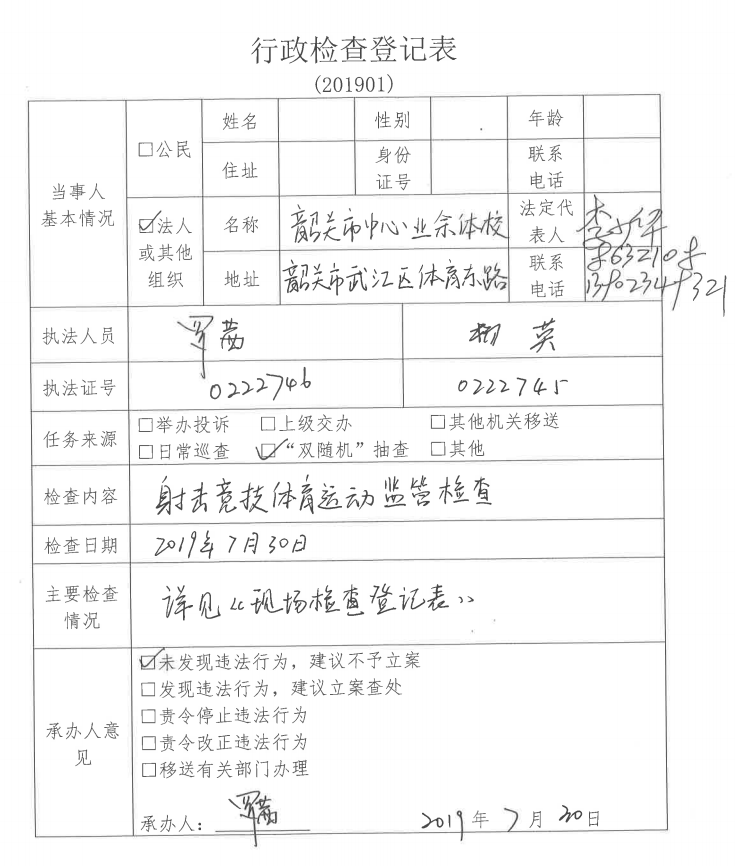 行政检查登记表
(201901)
当事人
基本情况
□公民
姓名
性别
年龄
住址
身份
证号
联系
电话
☑法人
或其他
组织
名称
韶关市中心业余体校
法定代
表人
李
地址
韶关市武江区体育东路
联系
电话
8632108
执法人员
罗茜
英
执法证号
0222746
0222745
任务来源
□举办投诉 □上级交办 □其他机关移送
□日常巡查 ☑“双随机”抽查 □其他
检查内容
射击竞技体育运动监管检查
检查日期
2019年7月30日
主要检查
情况
详见《现场检查登记表》
承办人意
见
☑未发现违法行为，建议不予立案
□发现违法行为，建议立案查处
□责令停止违法行为
□责令改正违法行为
□移送有关部门办理
承办人：罗茜 2019年7月30日